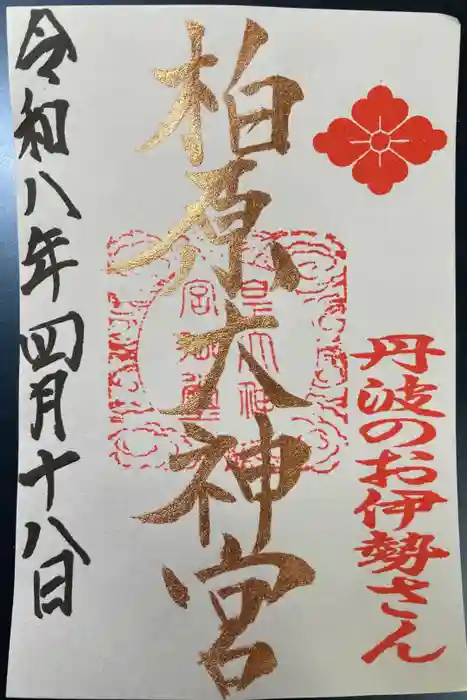 丹波のお伊勢さん
柏原大神宮
令和八年四月十八日